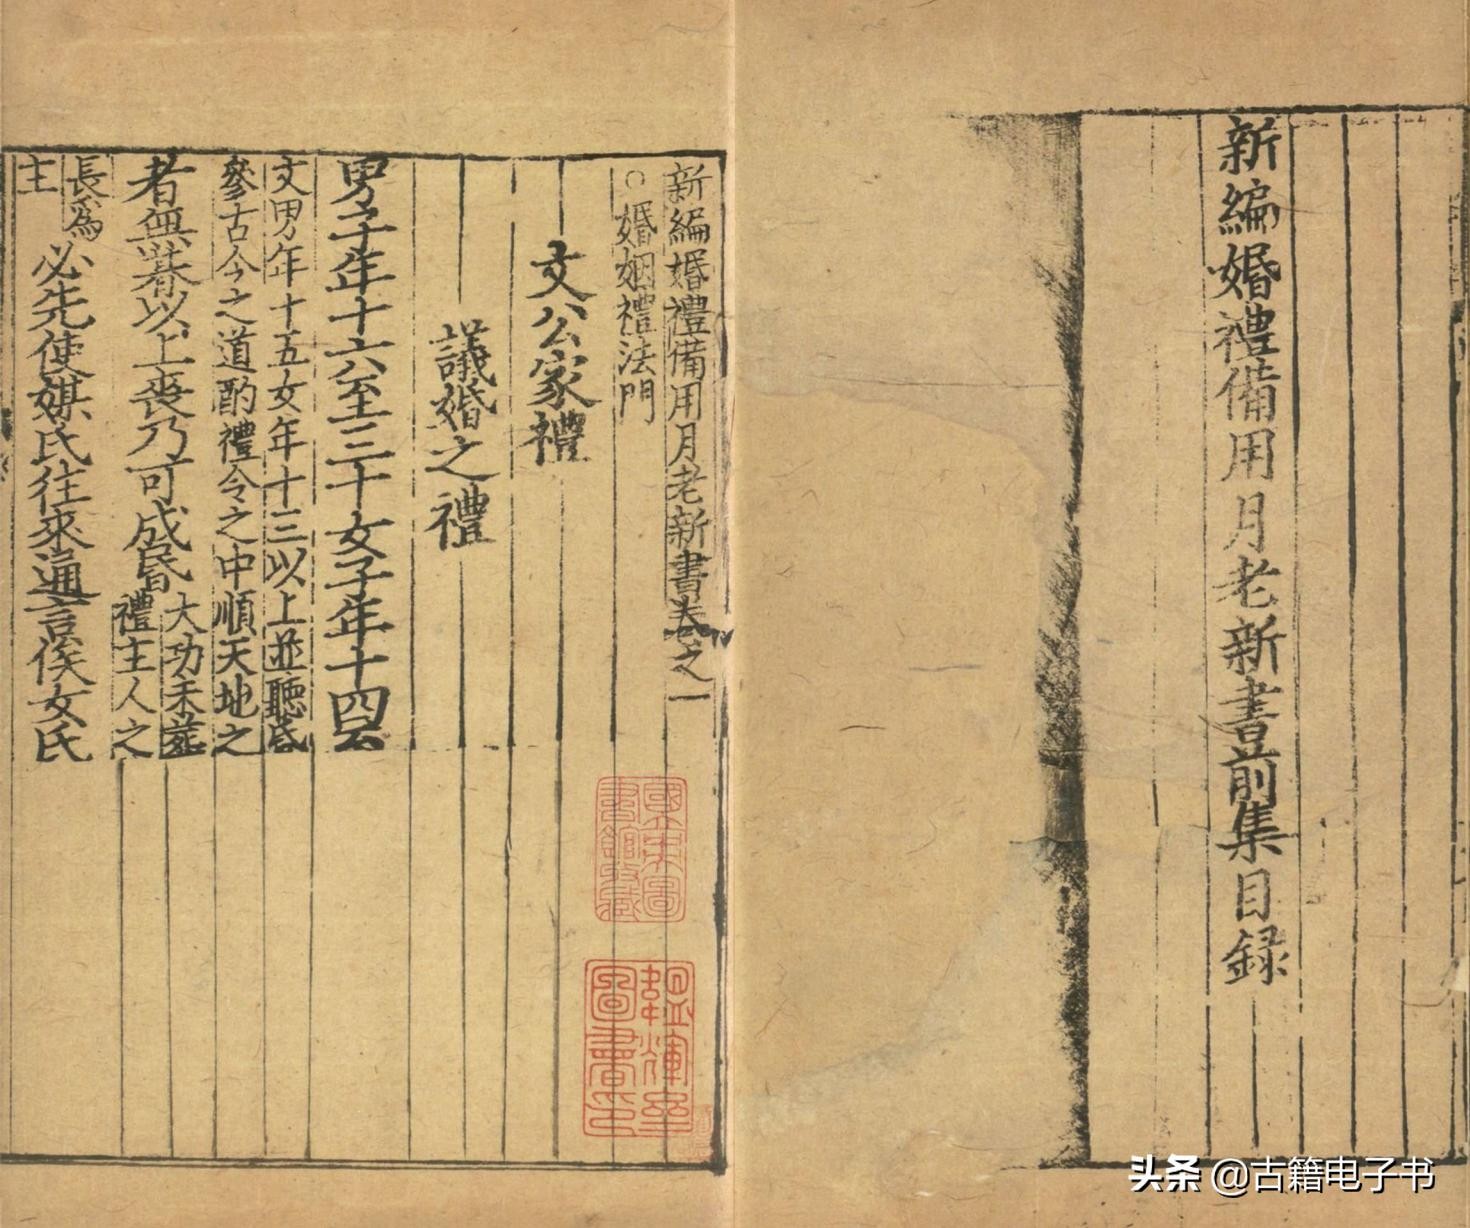 新編婚禮備用月老新書前集目録
新編婚禮備用月老新書卷之一
○婚姻禮法門
文公家禮
議婚之禮
男子年十六至三十女子年十四
文男年十五女年十三以上並聽昏
參古今之道酌禮令之中順天地之
者無朞以上喪乃可成昏
大功未葬
禮主人之
長爲
主
必先使媒氏往來通言俟女氏
國立中央圖書館收藏
韞輝齋圖書印
头条 @古籍电子书